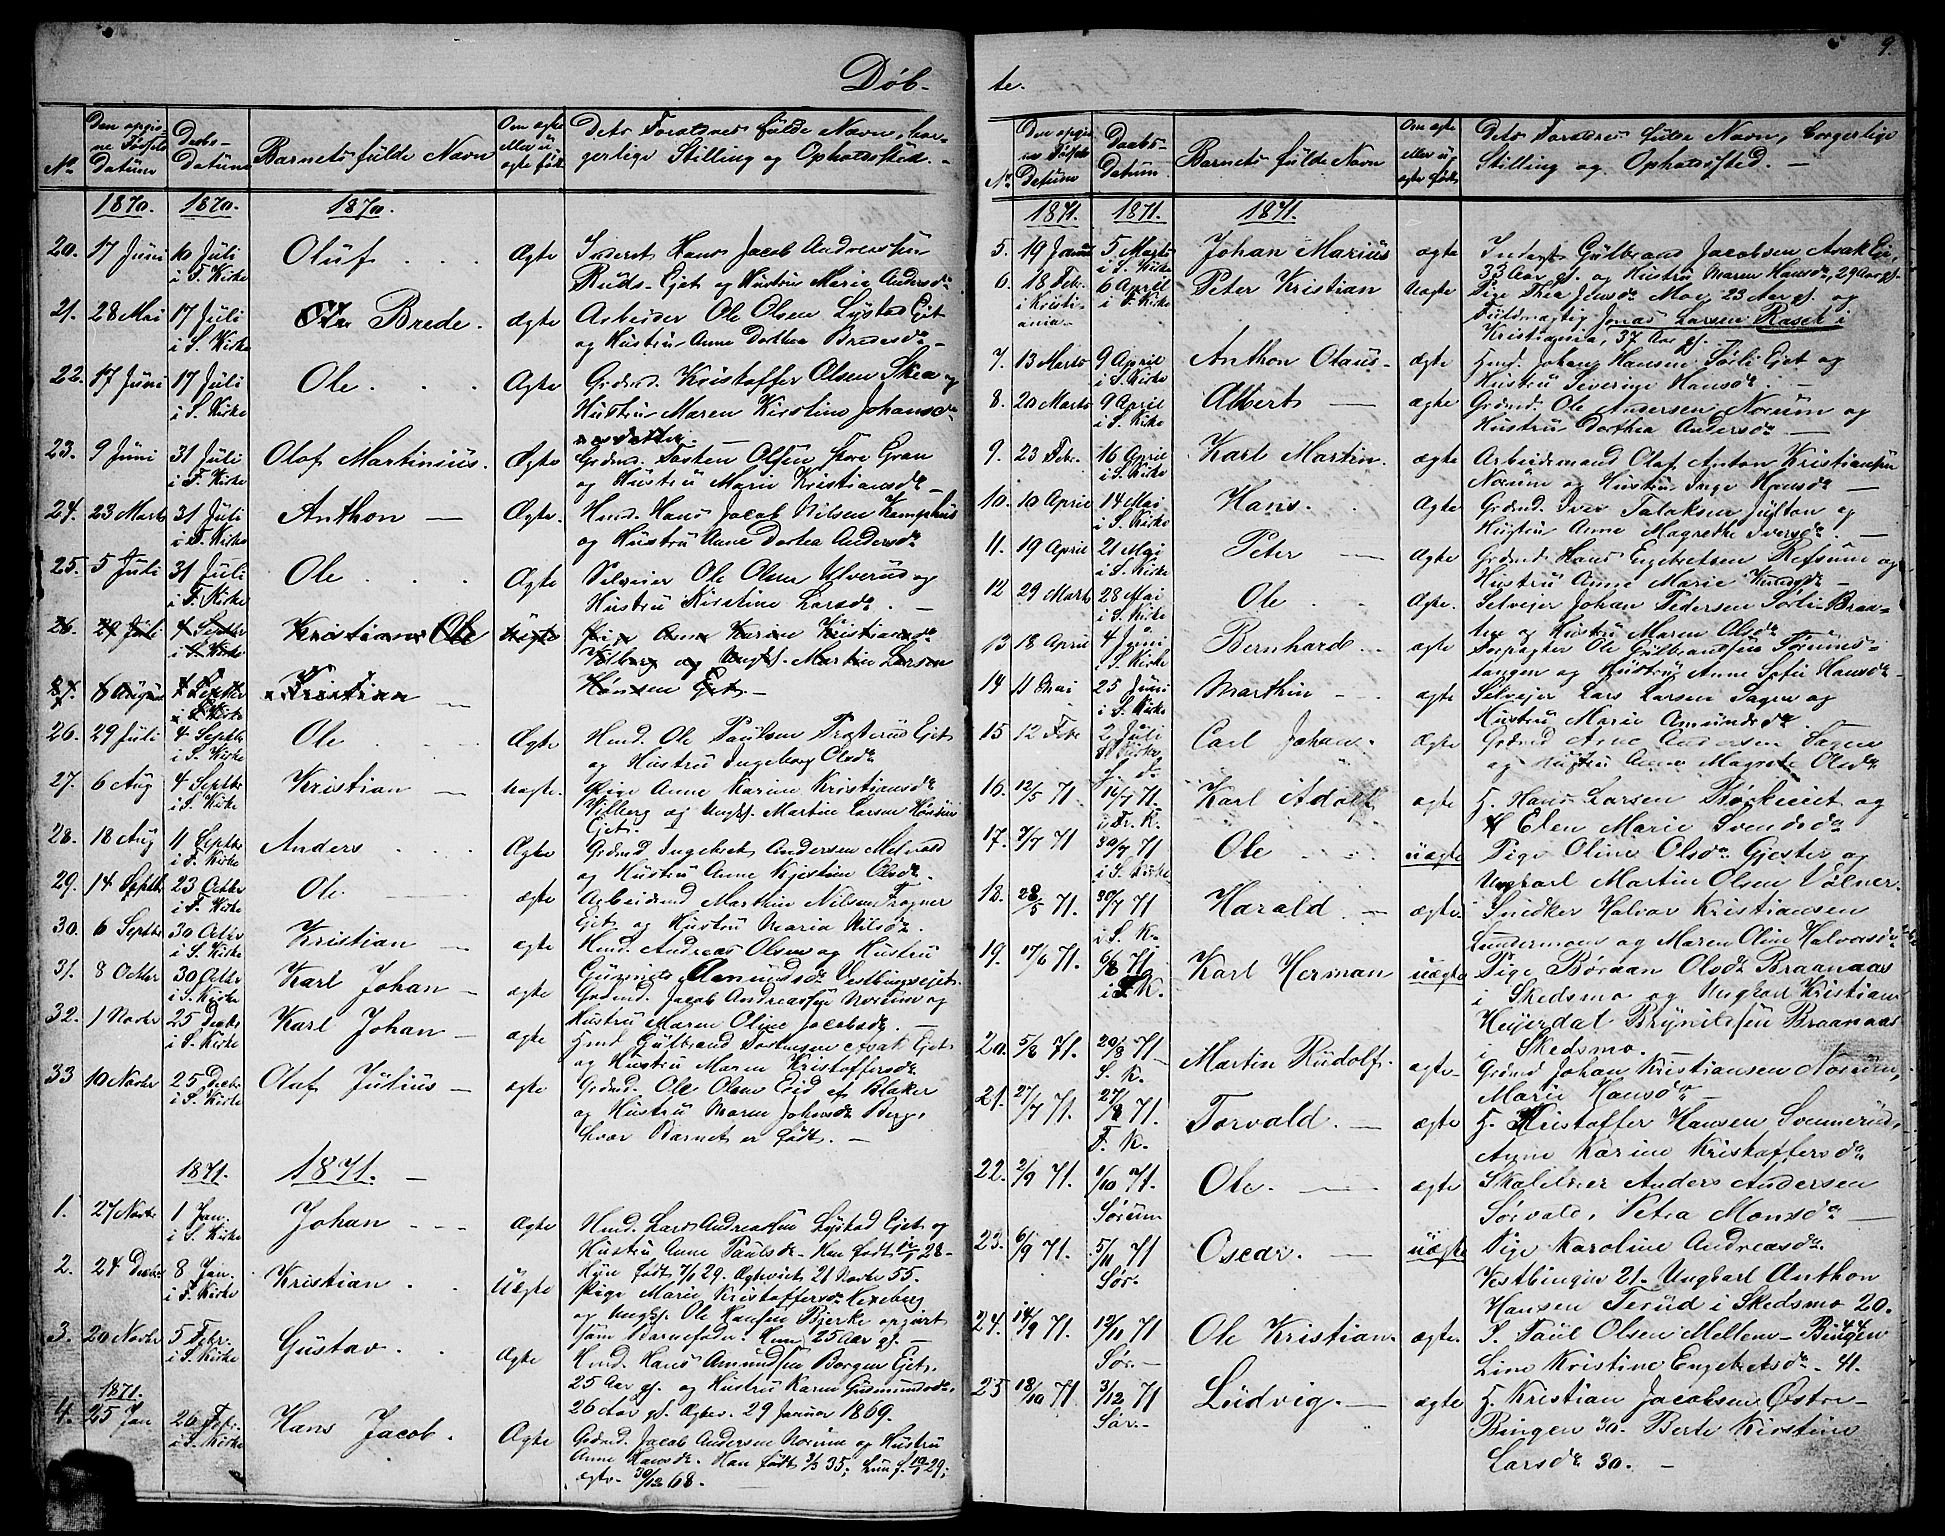 Døb-
No
Den opgivne Fødsels Datum
Daabs-Datum
Barnets fulde Navn
Om ægte eller uægte født
Dets Forældres fulde Navn, borgerlige Stilling og Opholdssted. -
1870. 1870. 1870.
20. 17 Juni 10 Juli i F. Kirke Oluf . . . Ægte Inderst Hans Jacob Andreassen
Ruds-Ejet og Hustru Maria Andersdr
21. 28 Mai 17 Juli i S. Kirke Ole Brede. ægte Arbeider Ole Olsen Lystad Ejet
og Hustru Anne Dorthea Bredesdr -
22. 17 Juni 17 Juli i S. Kirke Ole . . . Ægte Grdmd. Kristoffer Olsen Skea og
Hustru Maren Kirstine Johansdr
23. 9 Juni 31 Juli i F. Kirke Olaf Martinius. Ægte Grdmd. Torsten Olsen Tore Gran
og Hustru Marie Kristiansdr -
24. 23 Marts 31 Juli i F. Kirke Anthon - Ægte. Hmd. Hans Jacob Nilsen Kamphus
og Hustru Anne Dorthea Andersdr
25. 5 Juli 31 Juli i F. Kirke Ole . . . Ægte Selveier Ole Olsen Ulverud og
Hustru Kirstine Larsdr. -
26. 29 Juli 4 Septbr i S. Kirke Kristian Ole Uægte Pige Anne Karine Kristiansdr
Vilberg og Ungk. Martin Larsen
Hønsen Ejet -
27. 6 August 4 Septbr i S. Kirke Kristian -
26. 29 Juli 4 Septb i S. Kirke Ole . . . Ægte Hmd. Ole Paulsen Træterud Ejet
og Hustru Ingeborg Olsdr
27. 6 Aug 4 Septbr i S. Kirke Kristian - uægte. Pige Anne Karine Kristiansdr
Vilberg og Ungk. Martin Larsen Hønsen
Ejet. -
28. 18 Aug 11 Septbr i F. Kirke Anders . . . Ægte Grdmd Ingebret Andersen Melvold
og Hustru Anne Kjestine Olsdr.
29. 14 Septb 23 Octbr i F. Kirke Ole - ægte Arbeidsmd Marthin Nilsen Frogner
Ejet og Hustru Maria Nilsdr.
30. 6 Septbr 30 Octbr i S. Kirke Kristian - ægte Hmd. Andreas Olsen og Hustru
Gunnild Amundsdr Vestbyngsejet.
31. 8 Octbr 30 Octbr i S. Kirke Karl Johan - ægte Grdmd. Jacob Andreassen Norum og
Hustru Maren Oline Jacobsdr. -
32. 1 Novbr 25 Decbr i S. Kirke Karl Johan - ægte Hmd Gulbrand Sørensen Asak Ejet
og Hustru Maren Kristoffersdr
33 10 Novbr 25 Decbr i S. Kirke Olaf Julius - ægte Grdmd. Ole Olsen Eid af Blaker
og Hustru Maren Johnsdr Berg,
hvor Barnet er født. -
1871. 1871. -
1. 27 Novbr 1 Jan. i S. Kirke Johan - - - ægte Hmd. Lars Andreassen Lystad Ejet og
Hustru Anne Paulsdr. Han født 28-
Hun født 7/6 29. Ægteviet 21 Novbr 55.
2. 24 Decbr 8 Jan. i F. Kirke Kristian. . Uægte Pige Marie Kristoffersdr Kexeberg
og Ungk. Ole Hansen Bjerke opgivet
som Barnefader. Hun 25 Aar gl. -
3. 20 Novbr 5 Febr. i S. Kirke Gustav. . Ægte Hmd. Hans Amundsen Borgen Ejet.
25 Aar gl. og Hustru Karen Gusmundsdr,
26 Aar gl. Ægtev. 29 Januar 1869.
1871.
4. 25 Jan 26 Feb. i S. Kirke Hans Jacob. Ægte Grdmd. Jacob Andersen Norum og Hustru
Anne Hansdr. Han født 2/3 35; Hun f. 29;
ægtv. 30/12 68. -
te.
9.
No
Den opgivne Fødsels Datum
Daabs-Datum.
Barnets fulde Navn
Om ægte eller uægte født
Dets Forældres fulde Navn, borgerlige Stilling og Opholdssted. -
1871. 1871. 1871.
5. 19 Januar 5 Marts i S. Kirke Johan Marius ægte Inderst Gulbrand Jacobsen Asak Eje,
33 Aar gl. og Hustru Maren Hansdr, 29 Aar gl.
6. 18 Febr. i Kristiania 6 April i F. Kirke Peter Kristian Uægte Pige Thea Jensdr Moe, 23 Aar gl. og
Fuldmægtig Jonas Larsen Rasch i
Kristiania, 37 Aar gl. -
7. 13 Marts 9 April i S. Kirke Anthon Olaus - ægte Hmd. Johan Hansen Sørli Ejet og
Hustru Severine Hansdr. -
8. 20 Marts 9 April i S. Kirke Albert - ægte Grdmd. Ole Andersen Norum og
Hustru Dorthea Andersdr -
9. 23 Febr. 16 April i S. Kirke Karl Martin. ægte Arbeidsmand Olaf Anton Kristiansen
Norum og Hustru Inge Hansdr -
10. 10 April 14 Mai i S. Kirke Hans. . Ægte Grdmd. Iver Talaksen Jufton og
Hustru Anne Magrethe Iversdr. -
11. 19 April 21 Mai i S. Kirke Peter - Ægte Grdmd. Hans Engebretsen Refsum og
Hustru Anne Marie Knudsdr -
12 29 Marts 28 Mai i S. Kirke Ole . . Ægte. Selvejer Johan Pedersen Sørli-Braaten
og Hustru Maren Olsdr
13 18 April 4 Juni i S. Kirke Bernhard. . ægte Forpagter Ole Gulbrandsen Sørumstangen
og Hustru Anne Sofie Hansdr -
14 11 Mai 25 Juni i S. Kirke Marthin - - ægte Selvejer Lars Larsen Sagen og
Hustru Marie Amundsdr.
15 12 Feb 2 Juli S Kirke Carl Johan. - Ægte Grdmd Arne Andersen Sagen
og Hustru Anne Magrete Olsdr
16. 12/5 71 16/7 71. i Fr. K. Karl Adolf ægte H. Hans Larsen Børkeeiet og
H Elen Marie Svendsdr
17. 7/7 71 30/7 71. i S. Kirke Ole . . . . uægte Pige Oline Olsdr. Gjester og
Ungkarl Martin Olsen Vølner.
18. 28/5 71. 30/7 71 i S. K. Harald. - ægte Snidker Halvor Kristiansen
Lundermoen og Maren Oline Halvorsdr
19. 17/6 71. 6/8 71 i S. K. Karl Herman uægte Pige Børaan Olsdr Braanaas
i Skedsmo og Ungkarl Kristian
Heyerdal Brynildsen Braanaas
i Skedsmo. -
20. 5/8 71. 20/8 71 S. K. Martin Rudolf. ægte - Grdmd Johan Kristiansen Norum,
Marie Hansdr -
21. 27/7 71. 27/8 71. F. K. Torvald. - ægte H. Kristoffer Hansen Svennerud,
Anne Karine Kristoffersdr
22. 2/9 71. 1/10 71. Sørum Ole. - ægte Skolelærer Anders Andersen
Sørvald, Petra Monsdr -
23. 6/9 71. 5/11 71 Sør. Oscar. - uægte Pige Karoline Andreasdr.
Vestbingin 21 - Ungkarl Anthon
Hansen Terud i Skedsmo 20.
24. 14/9 71. 12/11 71 Sør. - Ole Kristian. ægte. S. Paul Olsen Mellem-Bingen 44
Line Kristine Engebretsdr - 41.
25 18/10 71. 3/12 71 Sør. - Ludvig. - ægte H. Kristian Jacobsen Østre-
Bingen 30. Berte Kirstine
Larsdr 30. -